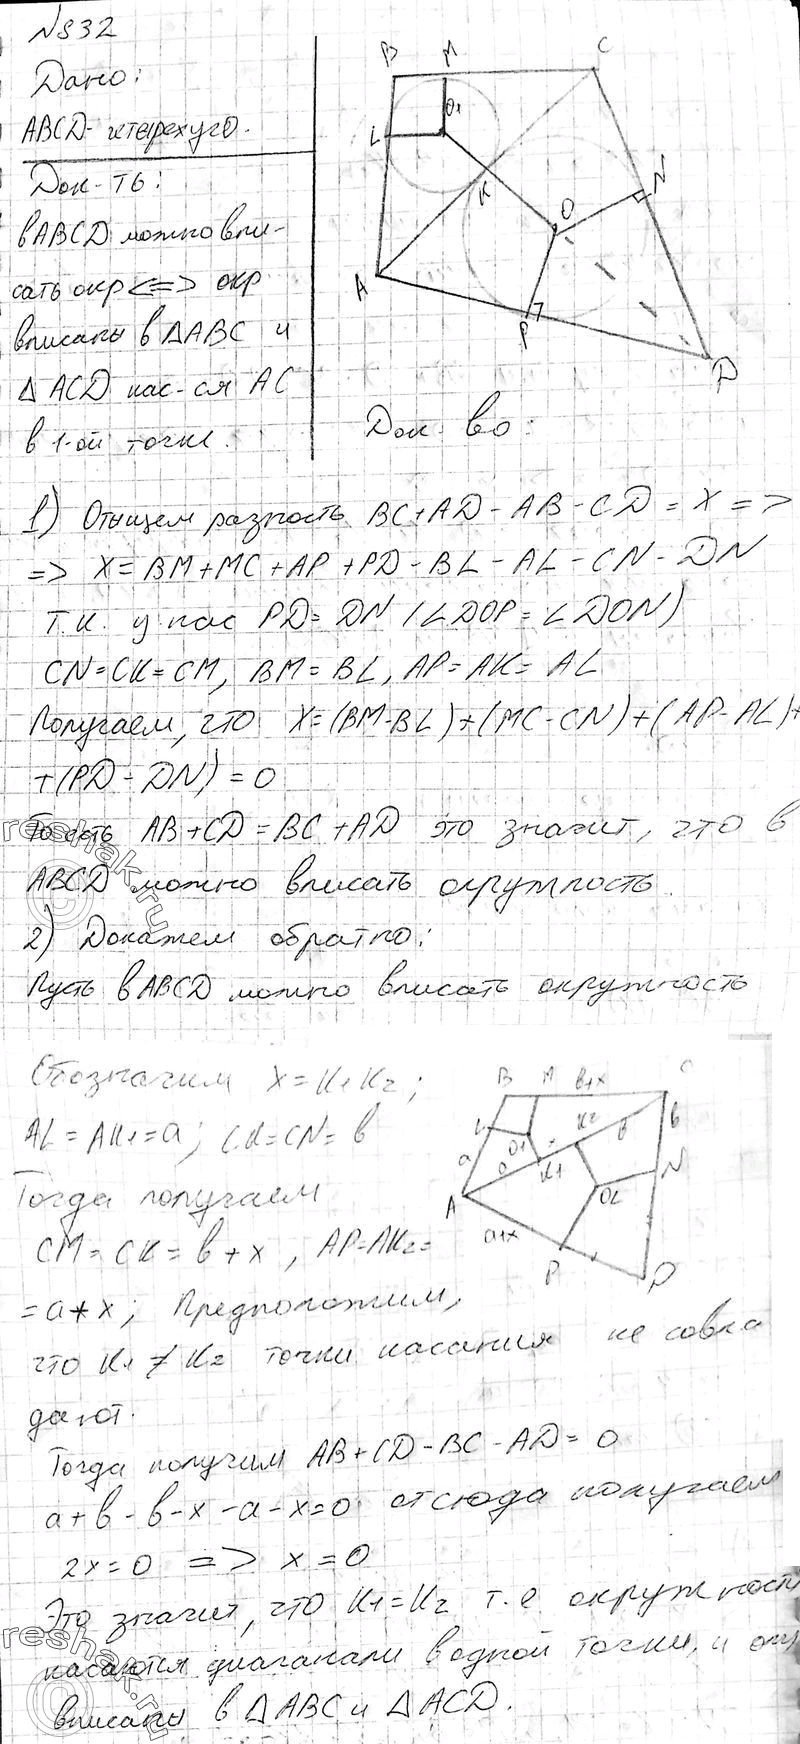 N832
Дано:
ABCD- четырехуго.
Док-ть:
в ABCD можно впи-
сать окр <=> окр
вписаны в △ABC и
△ACD кас-ся AC
в 1-ой точке.
B M C
L O1
K N
O
A
P
D
Док-во:
1) Отыщем разность BC+AD-AB-CD=X=>
=> X=BM+MC+AP+PD-BL-AL-CN-DN
т.к. у нас PD=DN (∠DOP=∠DON)
CN=CK=CM, BM=BL, AP=AK=AL
Получаем, что X=(BM-BL)+(MC-CN)+(AP-AL)+
+(PD-DN)=0
То есть AB+CD=BC+AD это значит, что в
ABCD можно вписать окружность.
2) Докажем обратно:
Пусть в ABCD можно вписать окружность
Обозначим X=K1K2;
AL=AK1=a; CK=CN=в
Тогда получаем
CM=CK=в+x, AP=AK2=
=a+x; Предположим,
что K1≠K2 точки касания не совпа
дают.
B M в+x C
L O1 K2 в в
a a K1 N
A O2
a+x P D
Тогда получим AB+CD-BC-AD=0
a+в-в-x-a-x=0 отсюда получаем
2x=0 => x=0
Это значит, что K1=K2 т.е окружности
касаются диаганали в одной точки, и окр
вписаны в △ABC и △ACD.
reshak.ru
reshak.ru